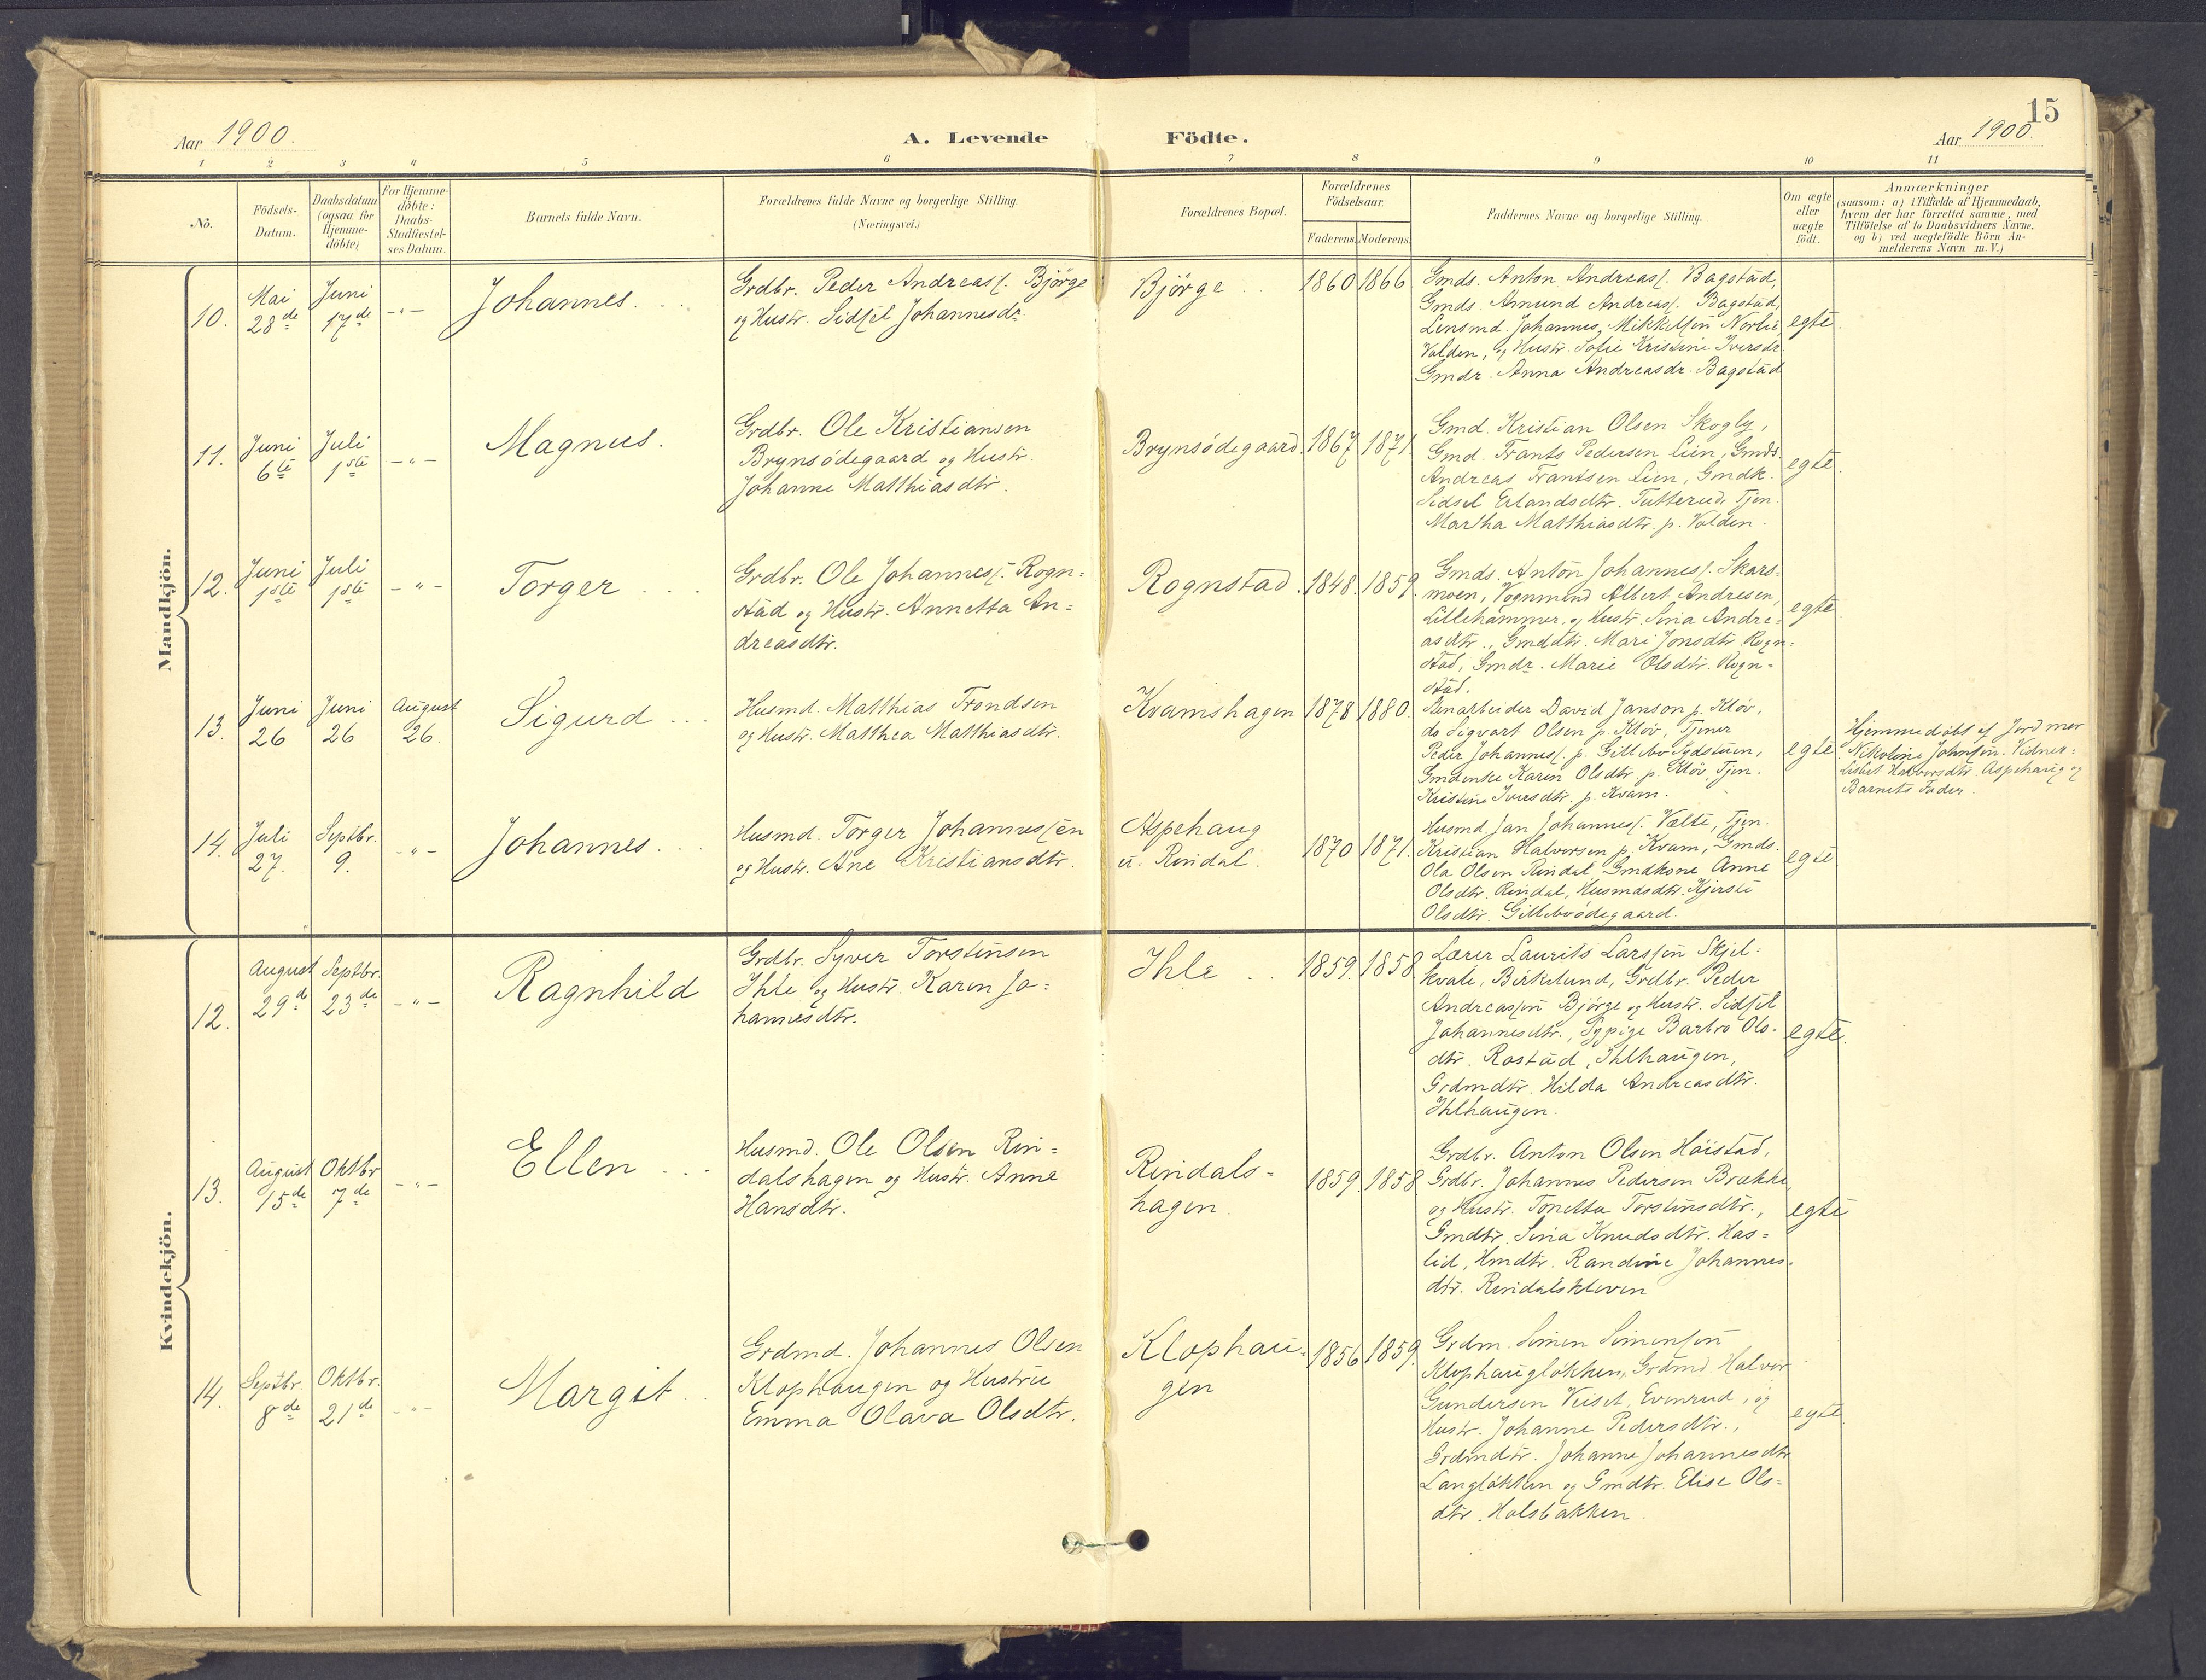 15
Aar 1900.
A. Levende Födte.
Aar 1900.
1 2 3 4 5 6 7 8 9 10 11
No.
Födsels-
Datum.
Daabsdatum
(ogsaa for
Hjemme-
döbte)
For Hjemme-
döbte:
Daabs-
Stadfæstel-
ses Datum.
Barnets fulde Navn.
Forældrenes fulde Navne og borgerlige Stilling.
(Næringsvei.)
Forældrenes Bopæl.
Forældrenes
Födselsaar.
Faderens. Moderens.
Faddernes Navne og borgerlige Stilling.
Om ægte
eller
uægte
födt.
Anmærkninger
(saasom: a) i Tilfælde af Hjemmedaab,
hvem der har forrettet samme, med
Tilföielse af to Daabsvidners Navne.
og b) ved uægtefödte Börn An-
melderens Navn m. V.)
Mandkjön.
10.
Mai
28de
Juni
17de
-"-
Johannes.
Grdbr. Peder Andreass. Bjørge
og Hustr. Sidsel Johannesdr.
Bjørge
1860 1866.
Gmds. Anton Andreass. Bagstad,
Gmds. Amund Andreass. Bagstad,
Lensmd. Johannes Mikkelsen Norlie
Volden, og Hustr. Sofie Kristine Iversdr.
Gmdr. Anna Andreasdr. Bagstad
egte.
11.
Juni
6te
Juli
1ste
-"-
Magnus.
Grdbr. Ole Kristiansen
Brynsødegaard og Hustr.
Johanne Matthiasdtr.
Brynsødegaard.
1867 1871.
Gmd. Kristian Olsen Skogly,
Gmd. Frants Pedersen Lien, Gmds.
Andreas Frantsen Lien, Gmdk.
Sidsel Erlandsdtr. Tutterud, Tjen.
Martha Matthiasdtr. p. Volden.
egte.
12.
Juni
1ste
Juli
1ste
-"-
Torger
Grdbr. Ole Johanness. Rogn=
stad og Hustr. Annetta An=
dreasdtr.
Rognstad.
1848. 1859.
Gmds. Anton Johanness. Skars=
moen, Vognmand Albert Andresen,
Lillehammer, og Hustr. Sina Andre=
asdtr., Gmddtr. Mari Jonsdtr. Rogn=
stad, Gmdr. Marie Olsdtr. Rogn=
stad.
egte
13.
Juni
26
Juni
26
August
26.
Sigurd
Husmd. Matthias Trondsen
og Hustr. Matthea Matthiasdtr.
Kvamshagen
1878 1880.
David Janson p. Kløv,
do Sigvart Olsen p. Kløv, Tjener
Peder Johanness. p. Gillebo Sydstuen,
Gmdenke Karen Olsdtr. p. Kløv, Tjen.
Kristine Iversdtr. p. Kvam.
egte
Hjemmedøbt af Jordmor
Nikoline Johnsen. Vidner:
Lisbet Halvorsdtr. Aspehaug og
Barnets Fader.
14.
Juli
27.
Septbr.
9.
-"-
Johannes.
Husmd. Torger Johannessen
og Hustr. Ane Kristiansdtr.
Aspehaug
u. Rindal.
1870 1871.
Husmd. Jan Johanness. Vælte, Tjen.
Kristian Halvorsen p. Kvam, Gmds.
Ola Olsen Rindal, Gmdkone Anne
Olsdtr. Rindal, Husmdsdtr. Kjersti
Olsdtr. Gilleboødegaard.
egte
Kvindekjön.
12.
August
29d
Septbr.
23de
-"-
Ragnhild
Grdbr. Syver Torstensen
Ihle og Hustr. Karen Jo=
hannesdtr.
Ihle
1859. 1858
Lærer Laurits Larssen Skjel=
kvale, Birkelund, Grdbr. Peder
Andreassen Bjørge og Hustr. Sidsel
Johannesdtr., Sypige Barbro Ols=
dtr. Rostad, Ihlhaugen,
Grdmdtr. Hilda Andreasdtr.
Ihlhaugen.
egte.
13.
August
15de
Oktbr
7de
-"-
Ellen
Husmd. Ole Olsen Rin=
dalshagen og Hustr. Anne
Hansdtr.
Rindals=
hagen.
1859. 1858
Grdbr. Anton Olsen Høistad,
Grdbr. Johannes Pedersen Brække
og Hustr. Tonetta Torstensdtr.,
Gmdtr. Sina Knudsdtr. Has=
lid, Hmdtr. Randine Johannes=
dtr. Rindalskleven
egte
14.
Septbr.
8de
Oktbr.
21de
-"-
Margit
Grdmd. Johannes Olsen
Klophaugen og Hustru
Emma Olava Olsdtr.
Klophau=
gen
1856 1859.
Grdm. Simen Simensen
Klophaugløkken, Grdmd. Halvor
Gundersen Veiset, Evenrud, og
Hustr. Johanne Pedersdtr.,
Grdmdtr. Johanne Johannesdtr
Langløkken og Gmdtr. Elise Ols=
dtr. Holsbakken
egte